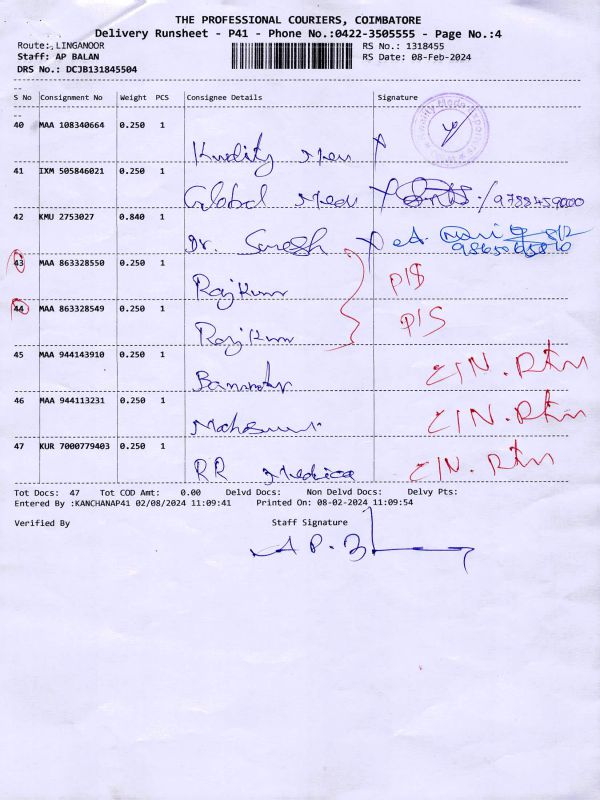 THE PROFESSIONAL COURIERS, COIMBATORE
Delivery Runsheet - P41 - Phone No.:0422-3505555 - Page No.:4
Route: LINGANOOR
RS No.: 1318455
Staff: AP BALAN
RS Date: 08-Feb-2024
DRS No.: DCJB131845504
S No Consignment No Weight PCS Consignee Details Signature
40 MAA 108340664 0.250 1
41 IXM 505846021 0.250 1
Global Medi 9788459000
42 KMU 2753027 0.840 1
Dr. Suresh
43 MAA 863328550 0.250 1
Rajkumar P/S
44 MAA 863328549 0.250 1
Rajkumar P/S
45 MAA 944143910 0.250 1
46 MAA 944113231 0.250 1
47 KUR 7000779403 0.250 1
RR Medica
Tot Docs: 47 Tot COD Amt: 0.00 Delvd Docs: Non Delvd Docs: Delvy Pts:
Entered By :KANCHANAP41 02/08/2024 11:09:41 Printed On: 08-02-2024 11:09:54
Verified By Staff Signature